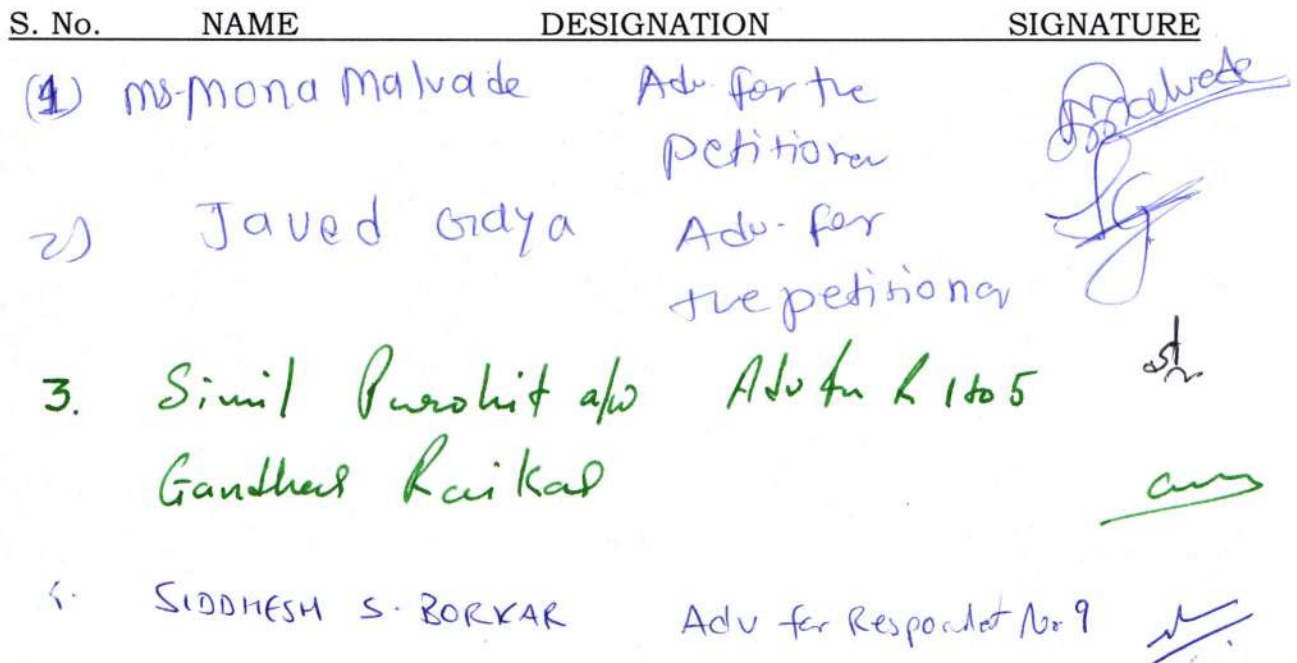 S. No. NAME DESIGNATION SIGNATURE
(1) Ms. Mona Malvade Adv. for the
petitioner
Malvade
2) Javed Gaya Adv. for
the petitioner
3. Simil Purohit a/w Adv for R 1 to 5
Gandhar Raikar
SIDDHESH S. BORKAR Adv for Respondent No. 9